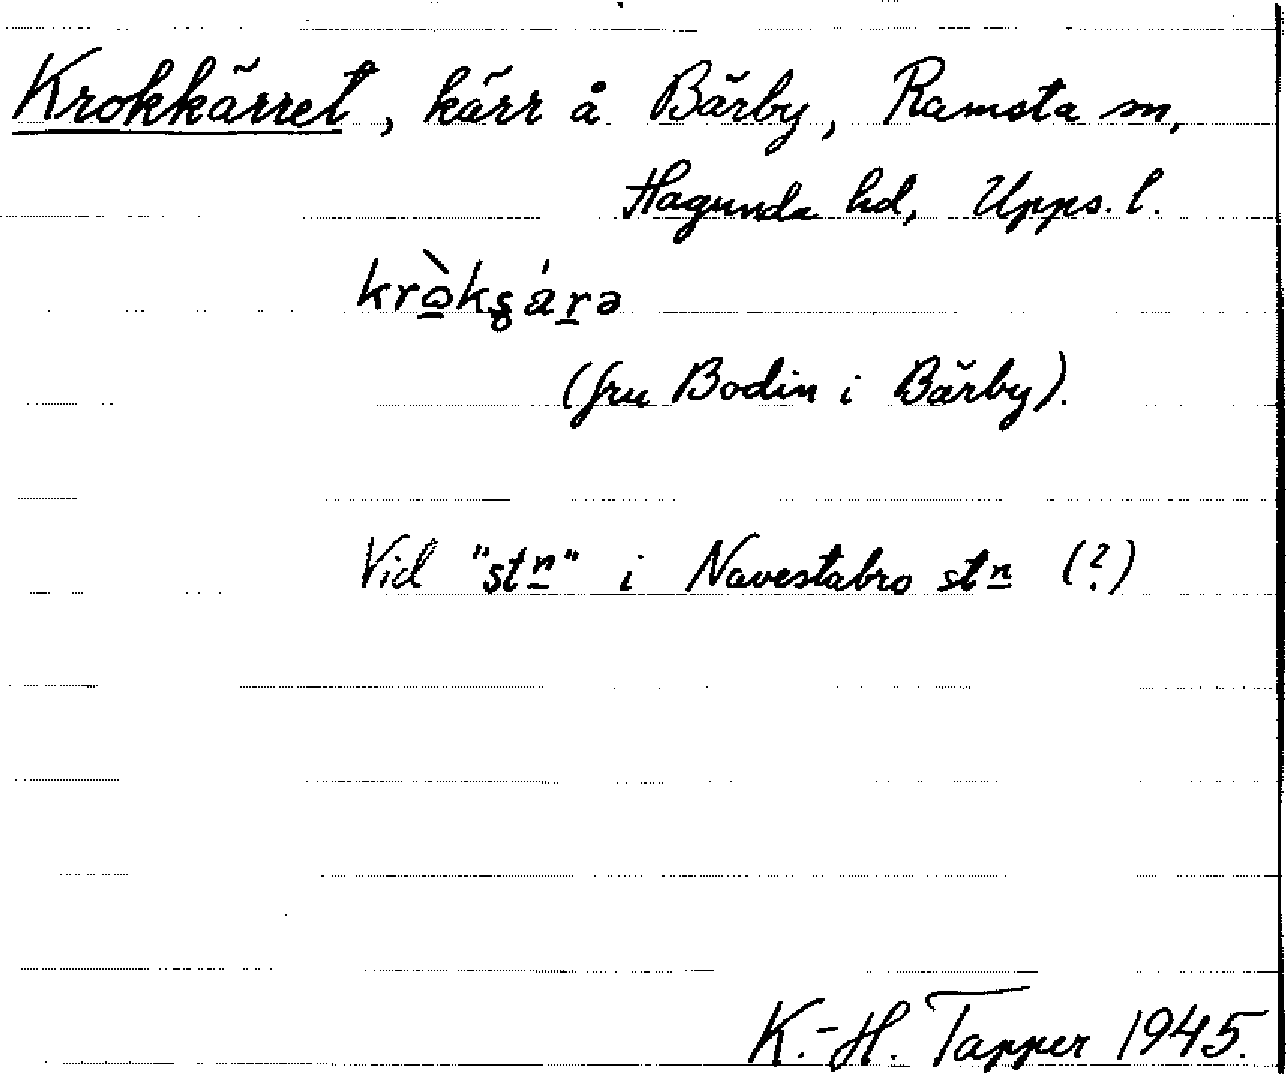 Krokkärret, kärr å Bärby, Ramsta sn,
Hagunda hd, Upps. l.
(fru Bodin i Bärby).
Vid "stn" i Navestabro stn (?)
K.-H. Tapper 1945.